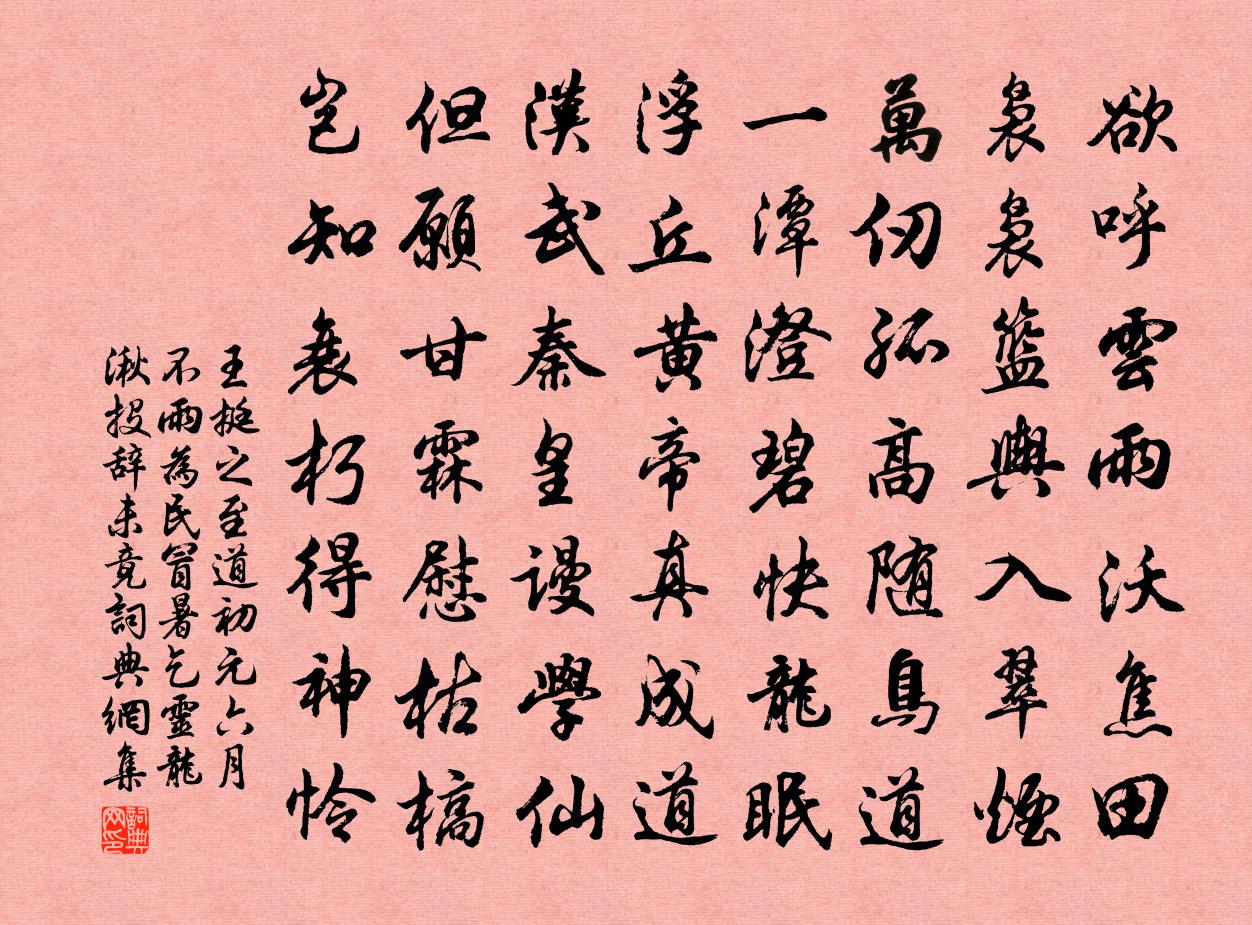 欲呼雲雨沃焦田
裊裊籃輿入翠煙
萬仞孤高随鳥道
一潭澄碧快龍眠
浮丘黃帝真成道
漢武秦皇謾學仙
但願甘霖慰枯槁
豈知衰朽得神怜
王挻之至道初元六月
不雨為民冒暑乞靈龍
湫投辞未竟詞典網集
詞典網印